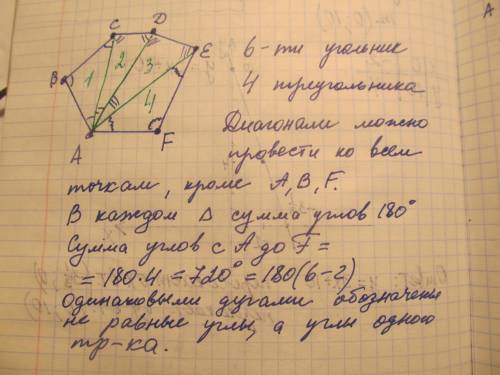 C D
E
B 1 2 3 4
A F
6-ти угольник
4 треугольника
Диагонали можно
провести ко всем
точкам, кроме A, B, F.
В каждом Δ сумма углов 180°
Сумма углов с A до F =
= 180·4 = 720° = 180(6-2)
Одинаковыми дугами обозначены
не равные углы, а углы одного
тр-ка.
A